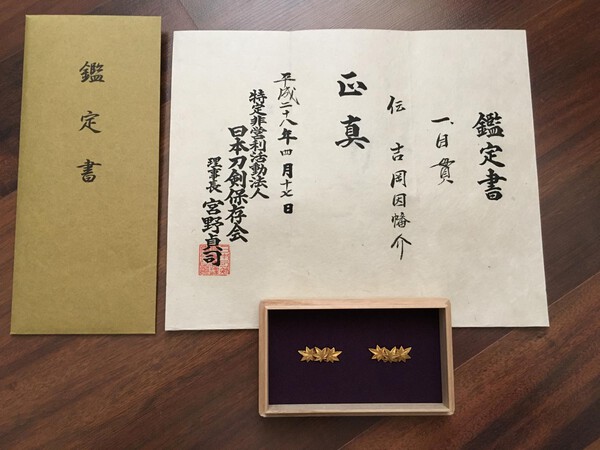 鑑定書
一、目貫
伝 吉岡因幡介
正真
平成二十八年四月十七日
特定非営利活動法人
日本刀剣保存会
理事長 宮野貞司
鑑定書